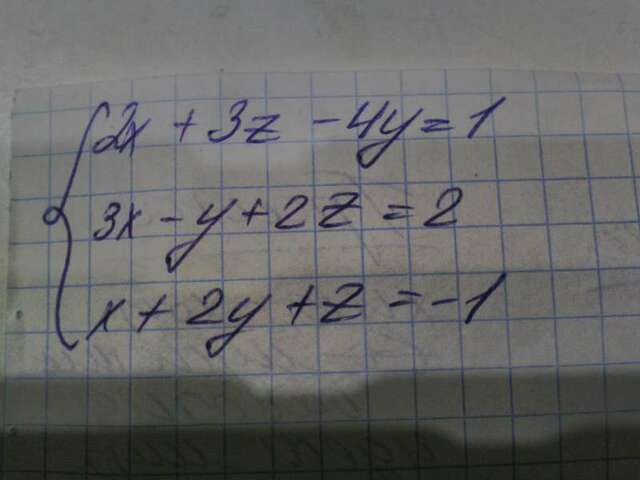 2x + 3z - 4y = 1
3x - y + 2z = 2
x + 2y + z = -1